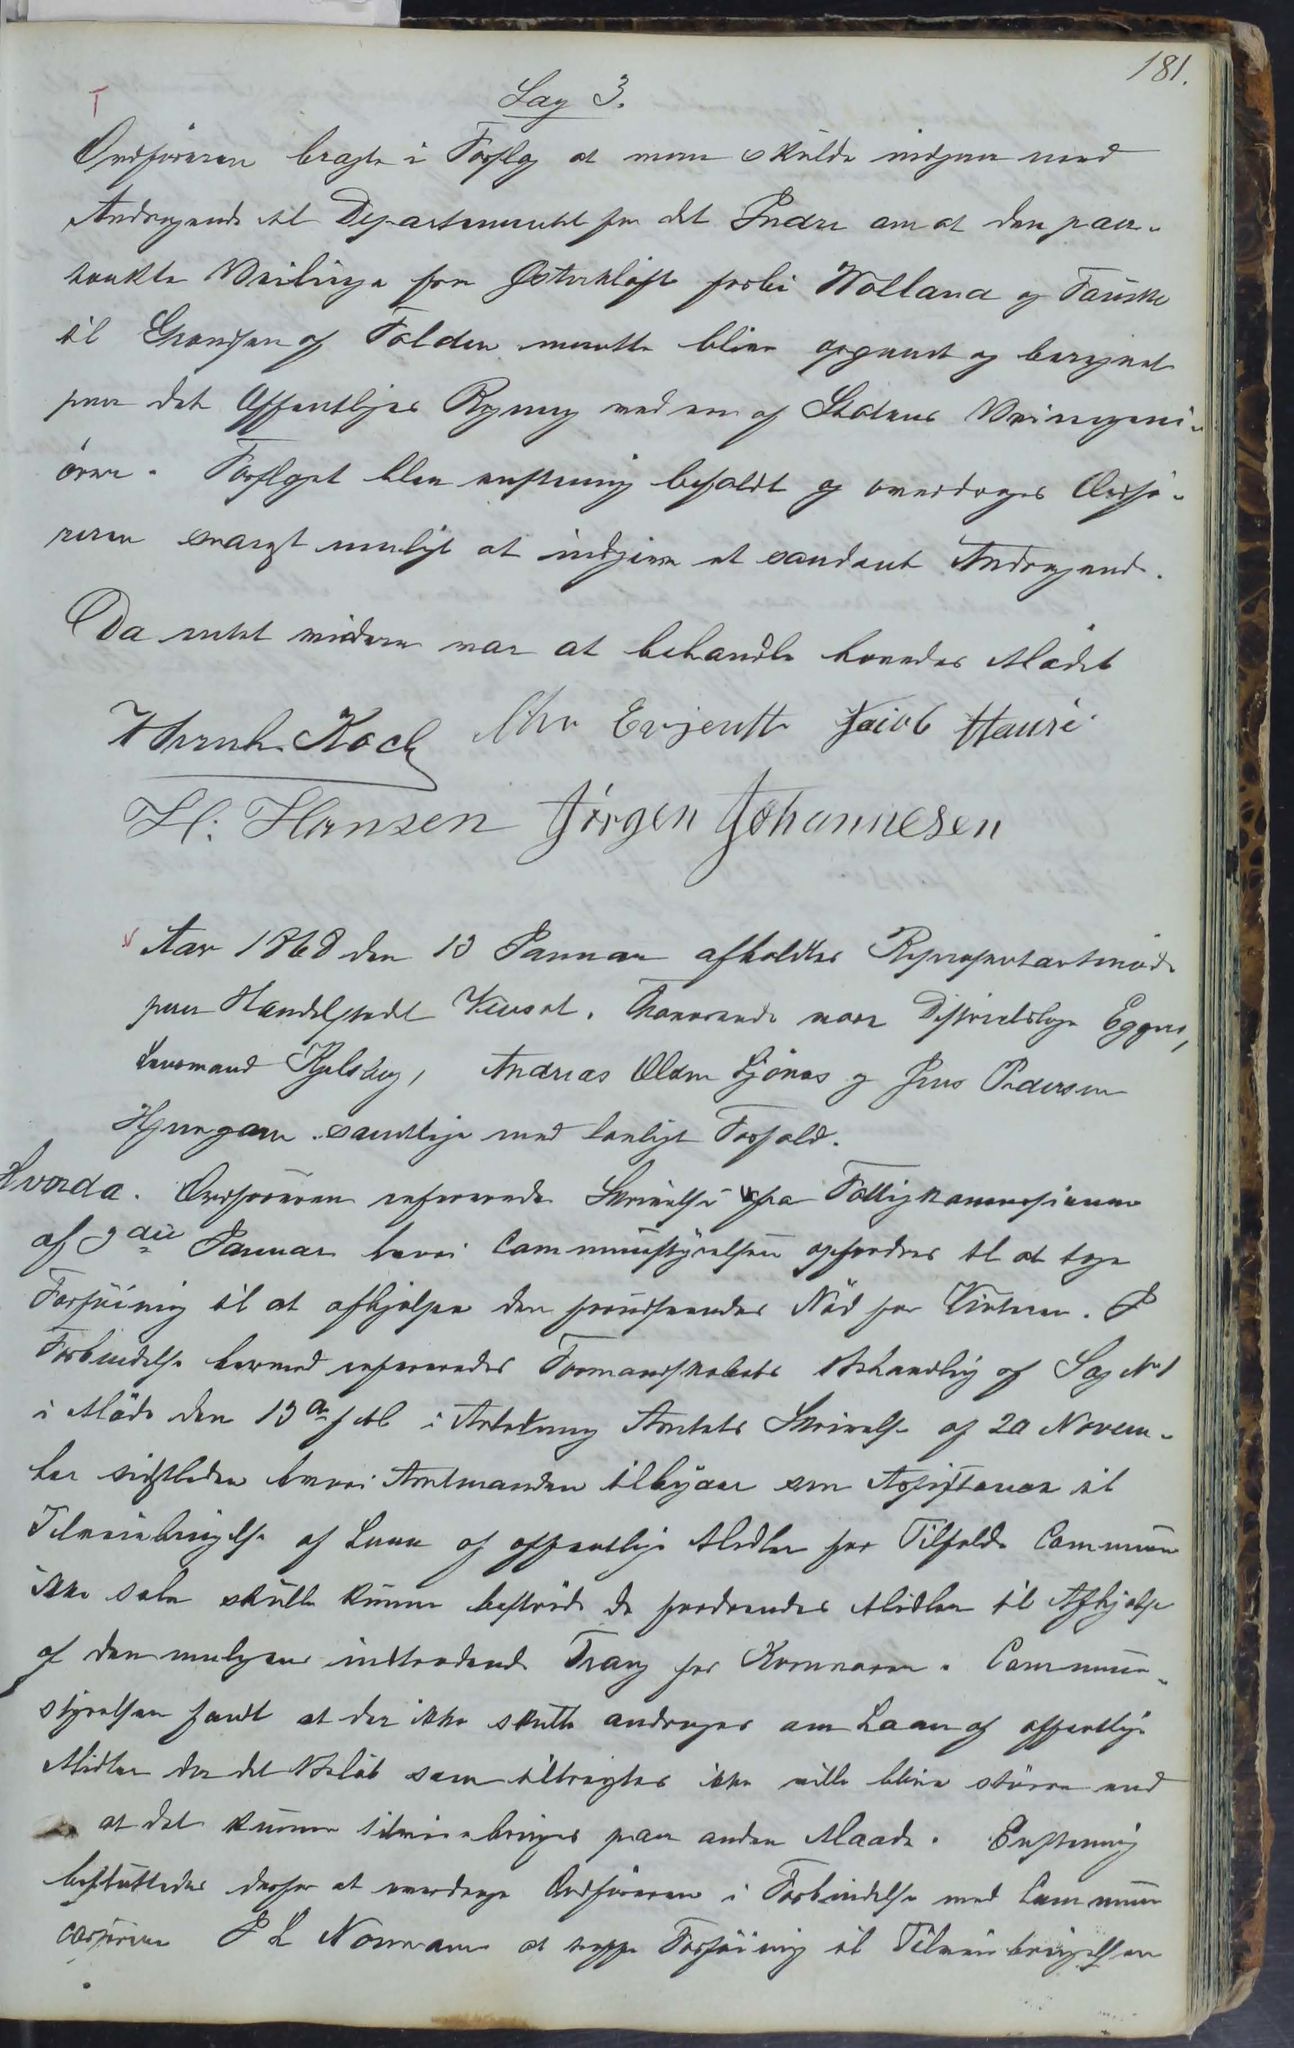 181.
Sag 3.
Ordføreren bragte i Forslag at man skulde indgaa med
Andragende til Departementet for det Indre om at den paa-
tænkte Veilinge fra Østerkløft forbi Wolland og Fauske
til Grændsen af Folden maatte blive opgaaet og beregnet
paa det Offentliges Regning ved en af Statens Veiingeni-
ører. Forslaget blev enstemig bifaldt og overdroges Ordfø-
reren snarest muligt at indgive et saadant Andragende.
Da intet videre var at behandle hævedes Mødet
Henrik Koch Chr Evjenth Jacob Hansen
H. Hansen Jørgen Johannesen
Aar 1868 den 13 Januar afholdtes Representantmøde
paa Handelstedet Venset. Fraværende vare Distriktslæge Eggen,
Lensmand Kjelsberg, Andreas Olsen Sjönes og Jens Pedersen
samtlige med lovligt Forfald.
Hvorda. Ordføreren refererede Skrivelse fra Fattigkommissionen
af 9de Januar hvori Communestyrelsen opfordres til at tage
Forføining til at afhjælpe den forestaaende Nød for Vinteren. I
Forbindelse hermed refereredes Formandskabets Behandling af Sag No 1
i Møde den 13de f. M. i Anledning Amtets Skrivelse af 20 Novem-
ber sidstleden hvori Amtmanden tilbyder sin Assistance til
Tilveiebringelse af Laan af offentlige Midler for Tilfælde Communen
ikke selv skulle kunne bestride de fornødne Midler til Afhjælpe
af den muligens indtrædende Trang for Kornvarer. Commune-
styrelsen fandt at der ikke skulle andrages om Laan af offentlige
Midler da det Beløb som tiltrængtes ikke ville blive større end
at det kunne tilveiebringes paa anden Maade. Enstemig
besluttedes derfor at overdrage Ordføreren i Forbindelse med Commune
casserer P L Normann at træffe Forføining til Tilveiebringelsen